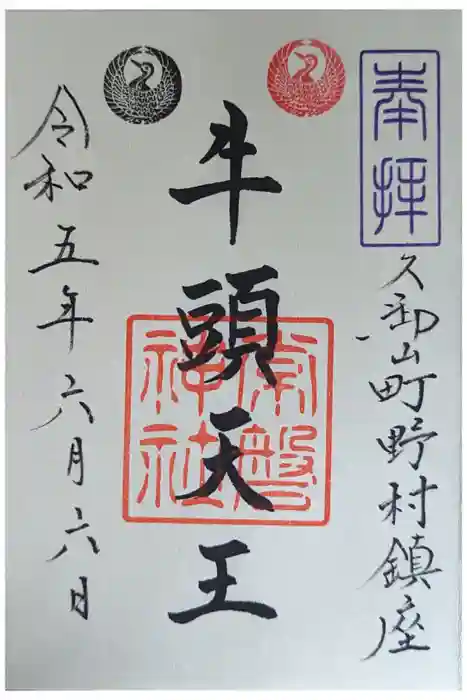 奉拝
久御山町野村鎮座
牛頭天王
常盤神社
令和五年六月六日